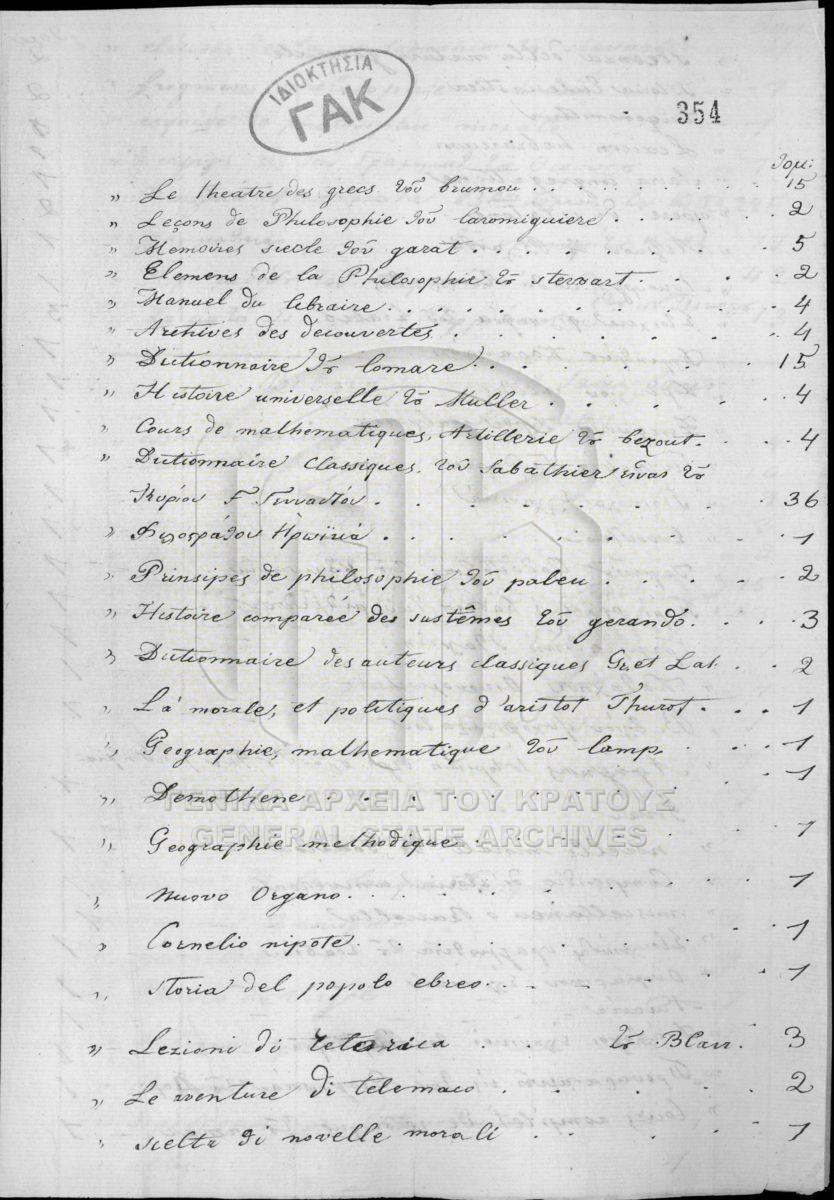 ΙΔΙΟΚΤΗΣΙΑ
ΓΑΚ
354
Τόμοι
" Le theatre des grecs τοῦ brumou . . . . . . . . 15
" Leçons de Philosophie τοῦ laromiguiere . . . . 2
" Memoires siecle τοῦ garat . . . . . . . . 5
" Elemens de la Philosophie τȣ stewart . . . . 2
" Manuel du libraire . . . . . . . . 4
" Archives des decouvertes . . . . . . . . 4
" Dictionnaire τȣ lomare . . . . . . . . 15
" Histoire universelle τȣ Muller . . . . . 4
" Cours de mathematiques, Artillerie τȣ bezout . . . 4
" Dictionnaire Classiques τοῦ Sabathier εἶναι τȣ
Κυρίου Γ Γενναδίου . . . . . . . . 36
" Φιλοστράτου Ηρωϊκά . . . . . . . . 1
" Prinsipes de philosophie τοῦ paleu . . . . . 2
" Histoire comparée des sustêmes τοῦ gerando . . . 3
" Dictionnaire des auteurs classiques Gr. et Lat. . . 2
" La morale, et politiques d'aristot Thurot . . . 1
" Geographie, mathematique τοῦ lamp. . . . 1
" Demothene . . . . . . . . 1
" Geographie methodique . . . . . . . . 1
" Nuovo Organo . . . . . . . . 1
" Cornelio nipote . . . . . . . . 1
" storia del popolo ebreo . . . . . . . 1
" Lezioni di retorica . . . τȣ Blair. 3
" Le aventure di telemaco . . . . . . . 2
" scelta di novelle morali . . . . . . . 1
ΓΕΝΙΚΑ ΑΡΧΕΙΑ ΤΟΥ ΚΡΑΤΟΥΣ
GENERAL STATE ARCHIVES